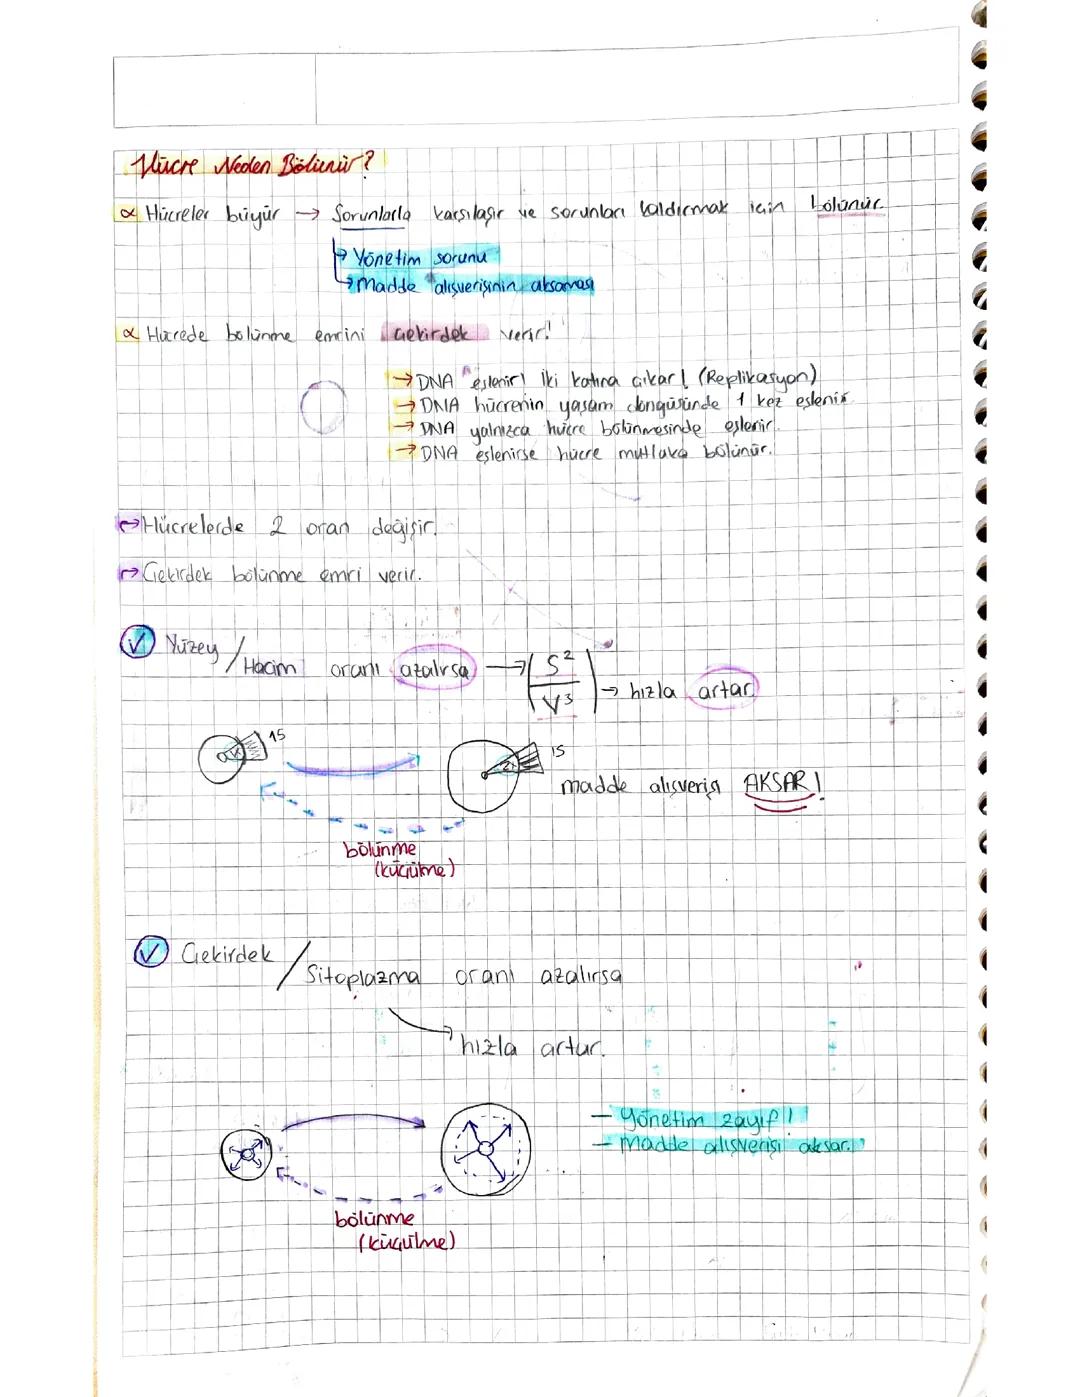 Hücre Neden Bölünür?
∝ Hücreler büyür → Sorunlarla karşılaşır ve sorunları kaldırmak için bölünür.
→ Yönetim sorunu
→ Madde alışverişinin aksaması
∝ Hücrede bölünme emrini çekirdek verir!
→ DNA eşlenir! İki katına çıkar! (Replikasyon)
→ DNA hücrenin yaşam döngüsünde 1 kez eşlenir.
→ DNA yalnızca hücre bölünmesinde eşlenir.
→ DNA eşlenirse hücre mutlaka bölünür.
→ Hücrelerde 2 oran değişir.
→ Çekirdek bölünme emri verir.
√ Yüzey / Hacim oranı azalırsa → S² / V³ → hızla artar.
15
15
2r
madde alışverişi AKSAR!
bölünme
(küçülme)
√ Çekirdek / Sitoplazma oranı azalırsa
hızla artar.
- Yönetim zayıf!
- Madde alışverişi aksar.
bölünme
(küçülme)